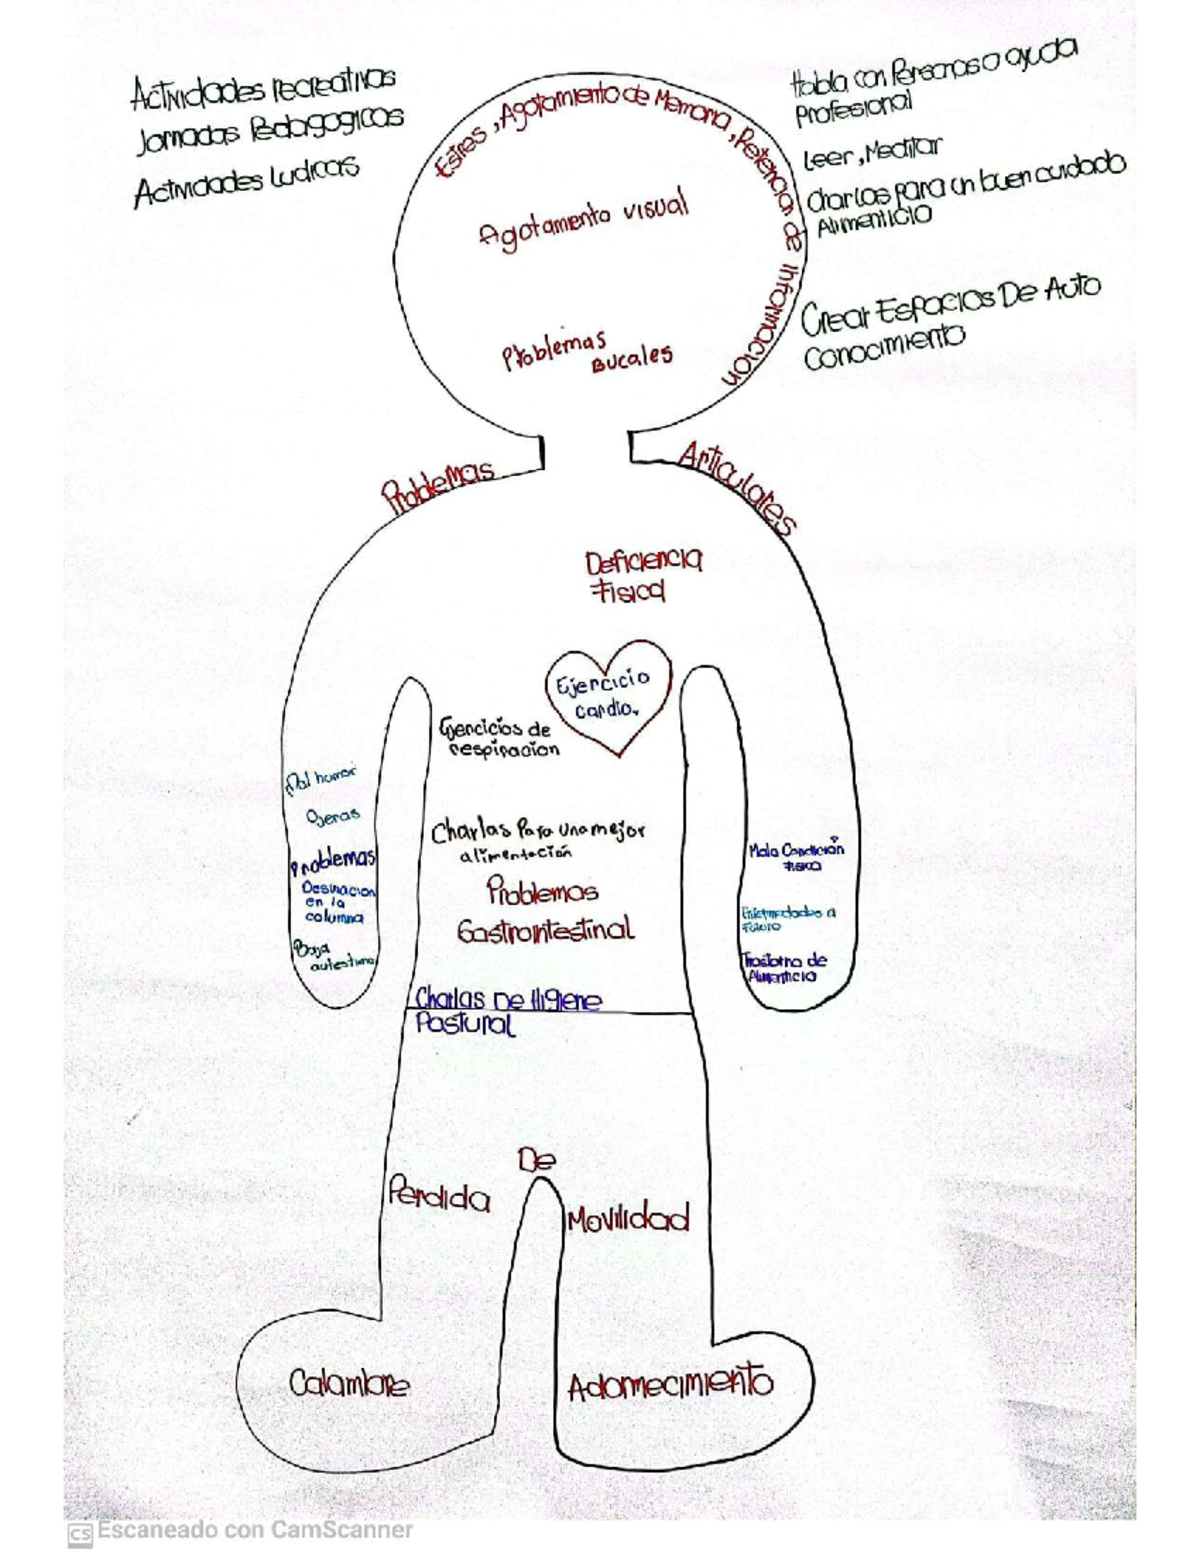 Actividades recreativas
Jornadas Pedagogicas
Actividades Ludicas
Habla con Personas o ayuda
Profesional
Leer, Meditar
Charlas para un buen cuidado
Alimenticio
Crear Espacios De Auto
Conocimiento
Estres, Agotamiento de Memoria, Retencion de Informacion
Agotamento visual
Problemas
Bucales
Problemas Articulares
Deficiencia
Fisica
Ejercicio
cardio.
Ejercicios de
respiracion
Mal humor
Ojeras
Problemas
Desviacion
en la
columna
Baja
autestima
Charlas Para una mejor
alimentación
Problemas
Gastrointestinal
Mala Condición
Fisica
Enfermedades a
Futuro
Trastorno de
Alimenticio
Charlas De Higiene
Postural
Perdida De Movilidad
Calambre
Adormecimiento
CS Escaneado con CamScanner